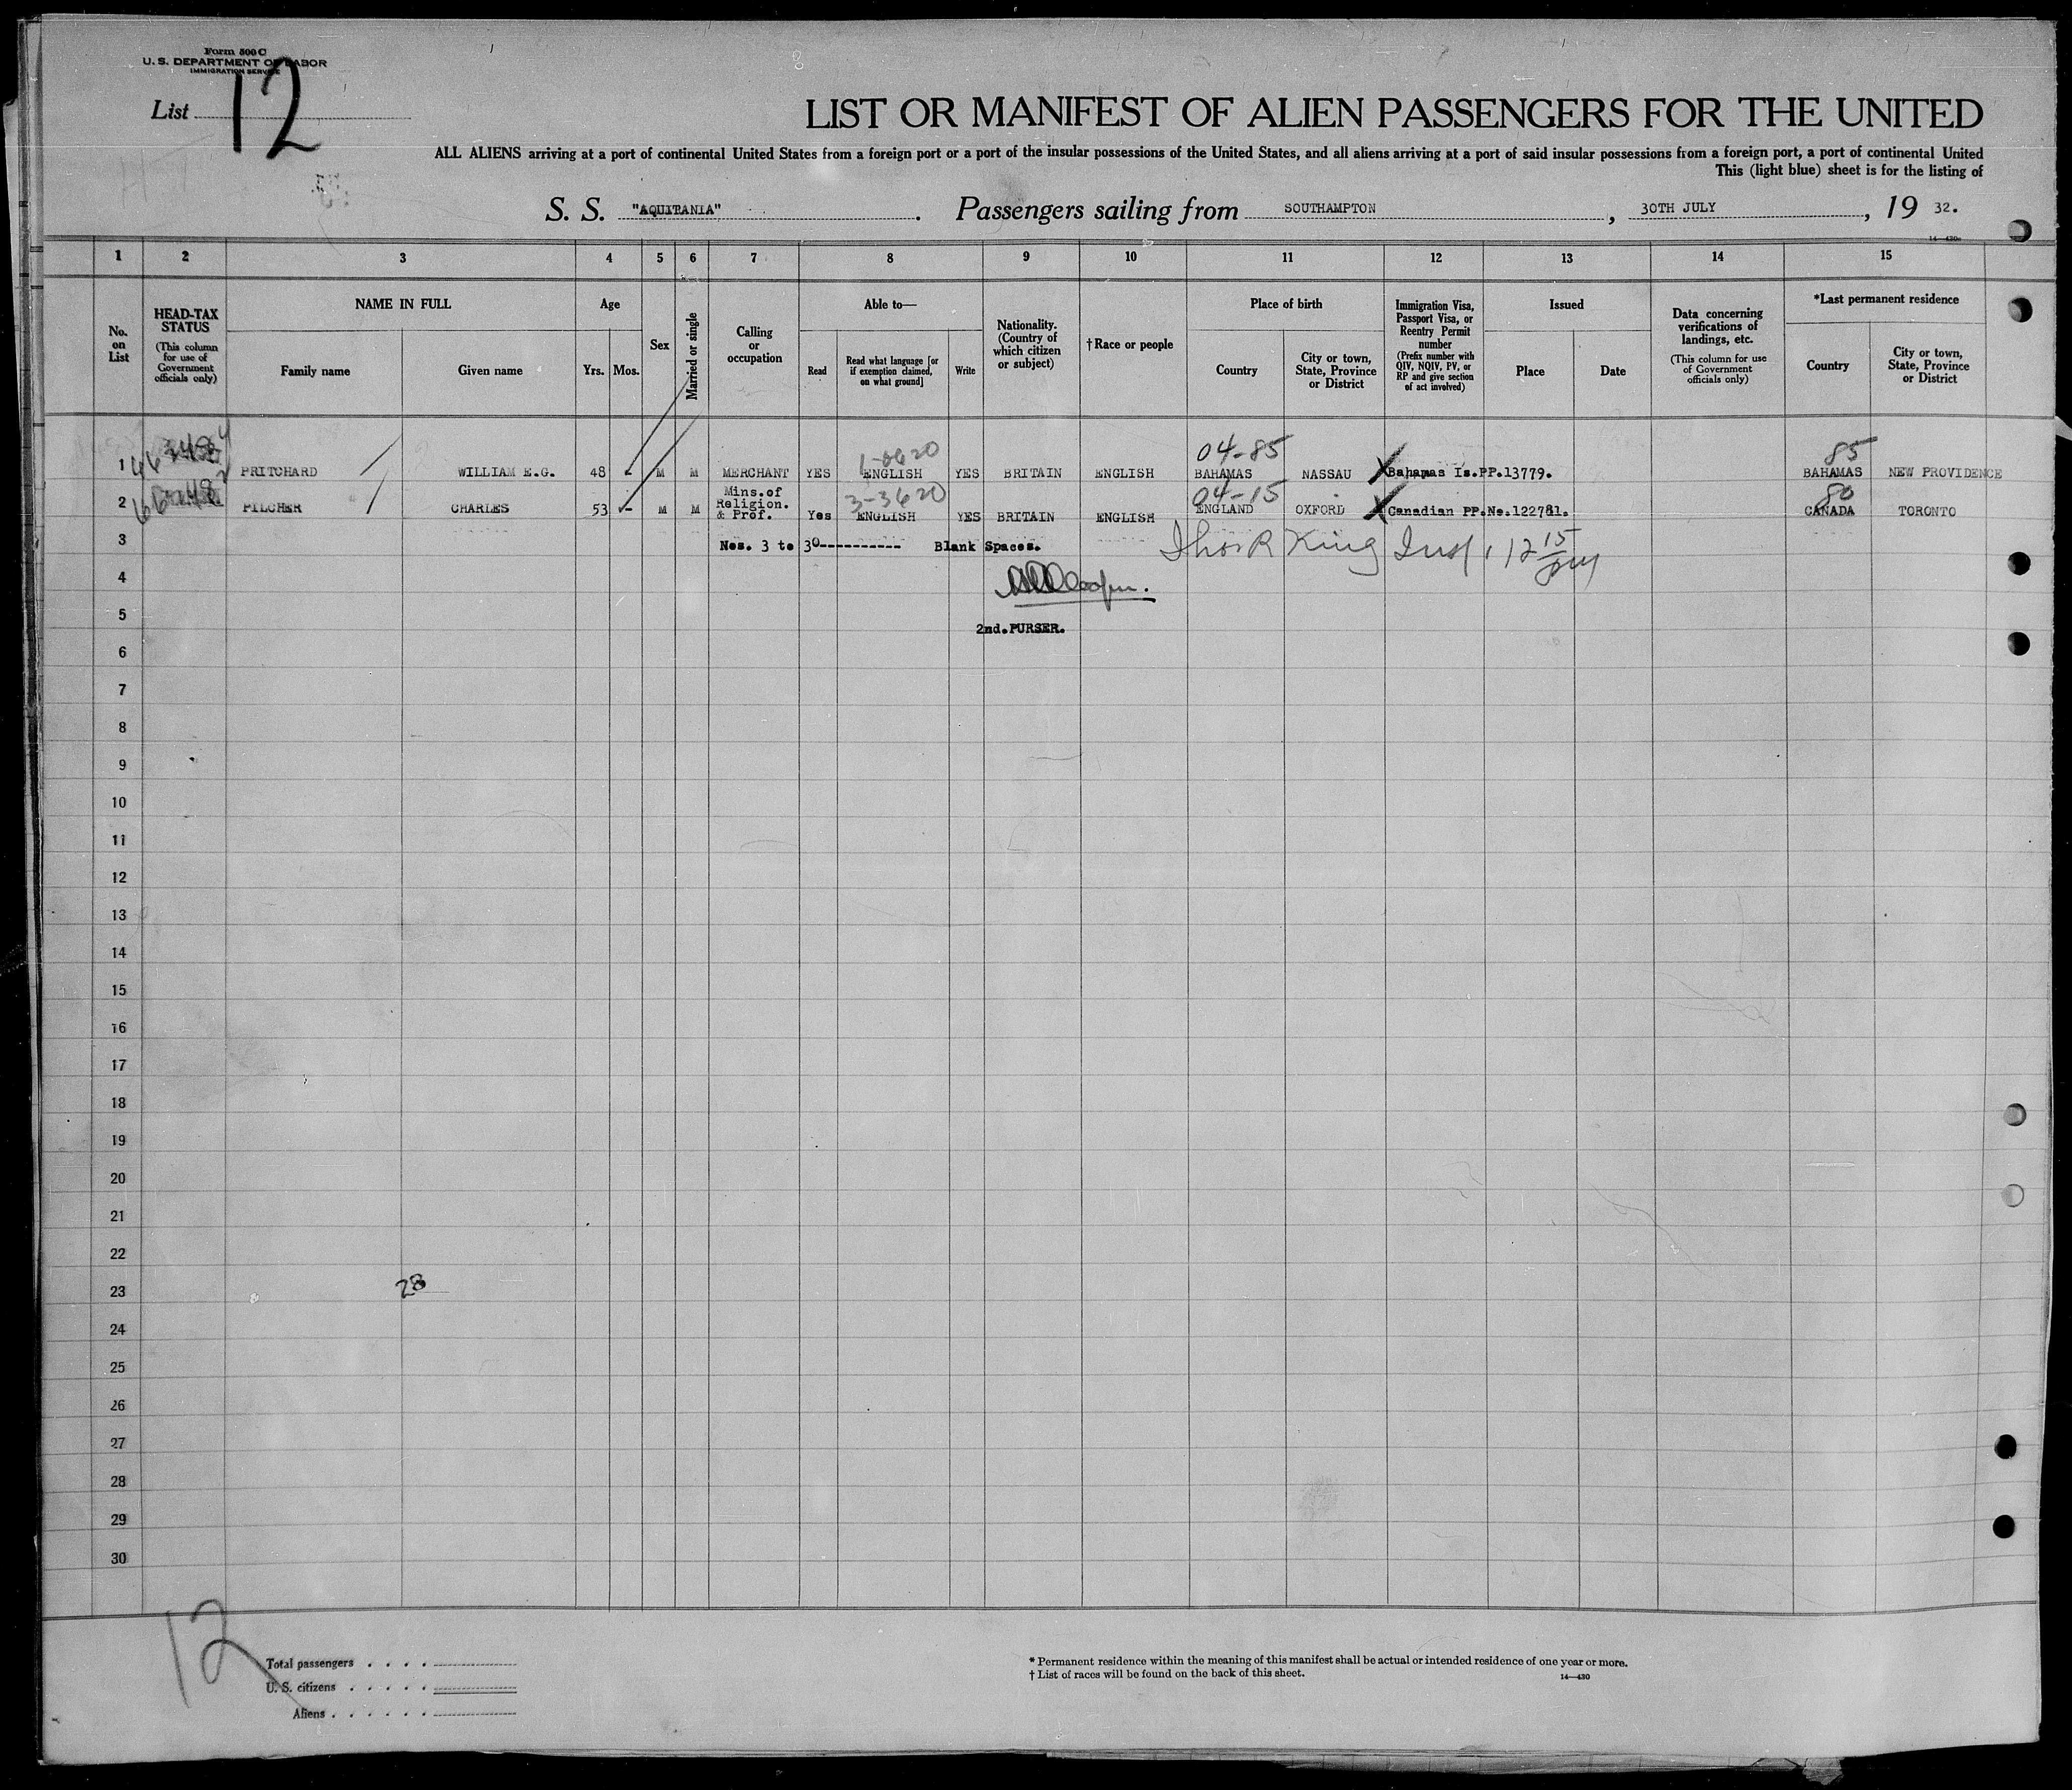 Form 500 C
U. S. DEPARTMENT OF LABOR
IMMIGRATION SERVICE
List 12
LIST OR MANIFEST OF ALIEN PASSENGERS FOR THE UNITED
ALL ALIENS arriving at a port of continental United States from a foreign port or a port of the insular possessions of the United States, and all aliens arriving at a port of said insular possessions from a foreign port, a port of continental United
This (light blue) sheet is for the listing of
S. S. "AQUITANIA" . Passengers sailing from SOUTHAMPTON , 30TH JULY , 19 32.
14—430
1 2 3 4 5 6 7 8 9 10 11 12 13 14 15
No. on List
HEAD-TAX STATUS
(This column for use of Government officials only)
NAME IN FULL
Family name
Given name
Age
Yrs. Mos.
Sex
Married or single
Calling or occupation
Able to—
Read
Read what language [or if exemption claimed, on what ground]
Write
Nationality. (Country of which citizen or subject)
†Race or people
Place of birth
Country
City or town, State, Province or District
Immigration Visa, Passport Visa, or Reentry Permit number
(Prefix number with QIV, NQIV, PV, or RP and give section of act involved)
Issued
Place
Date
Data concerning verifications of landings, etc.
(This column for use of Government officials only)
*Last permanent residence
Country
City or town, State, Province or District
04-85 85
1 PRITCHARD WILLIAM E.G. 48 M M MERCHANT YES ENGLISH YES BRITAIN ENGLISH BAHAMAS NASSAU Bahamas Is.PP.13779. BAHAMAS NEW PROVIDENCE
3-3620 04-15 80
2 PILCHER CHARLES 53 - M M Mins.of Religion. & Prof. Yes ENGLISH YES BRITAIN ENGLISH ENGLAND OXFORD Canadian PP.No.122781. CANADA TORONTO
3 Nos. 3 to 30---------- Blank Spaces. King Insp. 12 15 pm
4
5 2nd.PURSER.
6
7
8
9
10
11
12
13
14
15
16
17
18
19
20
21
22
23 28
24
25
26
27
28
29
30
12
Total passengers . . . .
U. S. citizens . . . . .
Aliens . . . . . .
* Permanent residence within the meaning of this manifest shall be actual or intended residence of one year or more.
† List of races will be found on the back of this sheet.
14—430